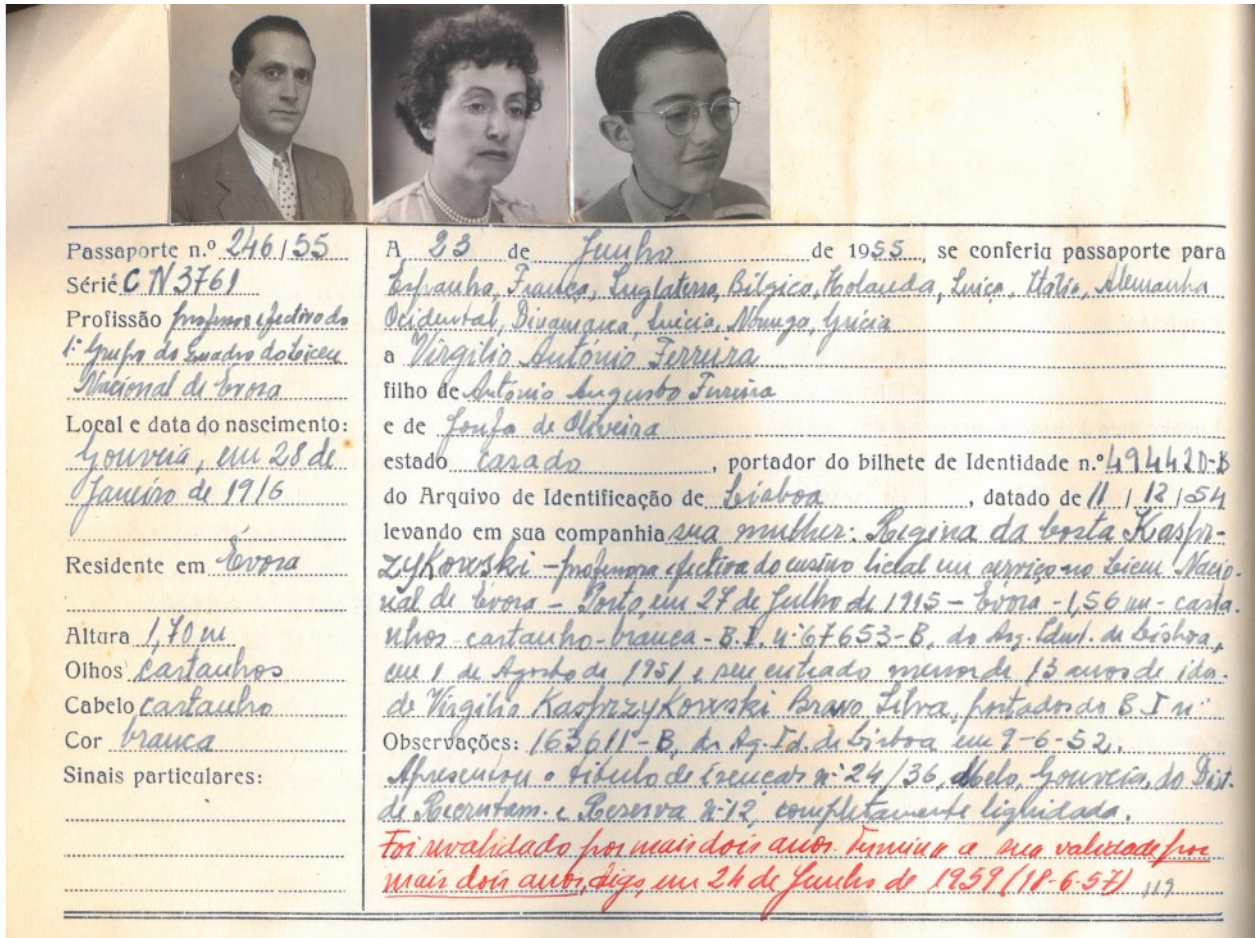 Passaporte n.º 246/55
Série C N 3761
Profissão professor efectivo do
1.º Grupo do Quadro do Liceu
Nacional de Évora
Local e data do nascimento:
Gouveia, em 28 de
Janeiro de 1916
Residente em Évora
Altura 1,70 m
Olhos castanhos
Cabelo castanho
Cor branca
Sinais particulares:
A 23 de Junho de 1955, se conferiu passaporte para
Espanha, França, Inglaterra, Bélgica, Holanda, Suiça, Itália, Alemanha
Ocidental, Dinamarca, Suécia, Noruega, Grécia
a Virgílio António Ferreira
filho de António Augusto Ferreira
e de Josefa de Oliveira
estado casado, portador do bilhete de Identidade n.º 494420-B
do Arquivo de Identificação de Lisboa, datado de 11/12/54
levando em sua companhia sua mulher: Regina da Costa Kaspr-
zykowski - professora efectiva do ensino liceal em serviço no Liceu Nacio-
nal de Évora - Porto, em 27 de Julho de 1915 - Évora - 1,56 m - casta-
nhos - castanho - branca - B.I. n.º 67653-B, do Arq. Ident. de Lisboa,
em 1 de Agosto de 1951 e seu enteado menor de 13 anos de ida-
de Virgílio Kasprzykowski Bravo Silva, portador do B.I. n.º
Observações: 163611-B, do Aq. Id. de Lisboa em 9-6-52.
Apresentou o título de isenção n.º 24/36, Melo, Gouveia, do Dist.
de Recrutam. e Reserva n.º 12, completamente liquidada.
Foi revalidado por mais dois anos. Termina a sua validade por
mais dois anos, digo, em 24 de Junho de 1959 (18-6-57) 119